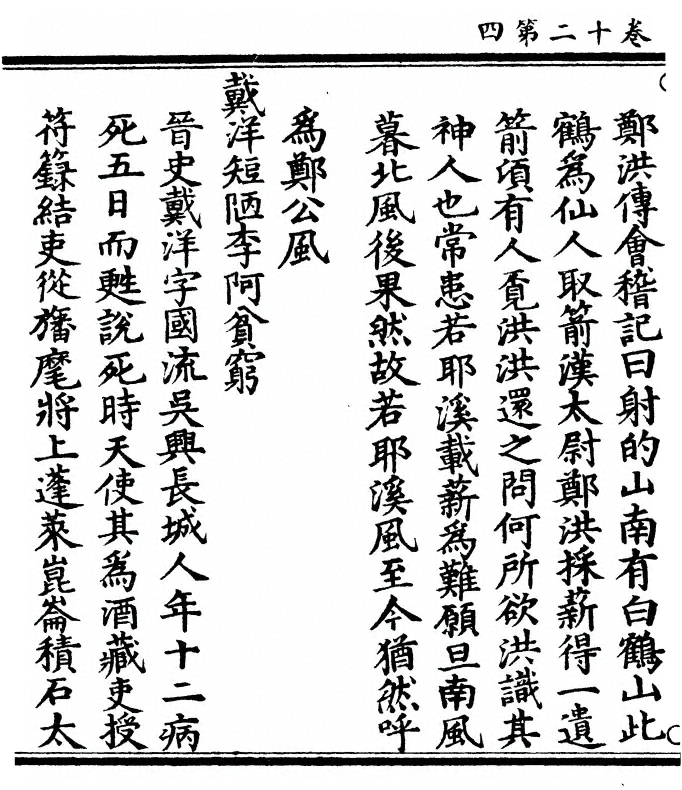 卷十二第四
鄭洪傳會稽記曰射的山南有白鶴山此
鶴爲仙人取箭漢太尉鄭洪採薪得一遺
箭頃有人覔洪洪還之問何所欲洪識其
神人也常患若耶溪載薪爲難願旦南風
暮北風後果然故若耶溪風至今猶然呼
爲鄭公風
戴洋短陋李阿貧窮
晉史戴洋字國流吳興長城人年十二病
死五日而甦說死時天使其爲酒藏吏授
符籙結吏從旛麾將上蓬萊崑崙積石太